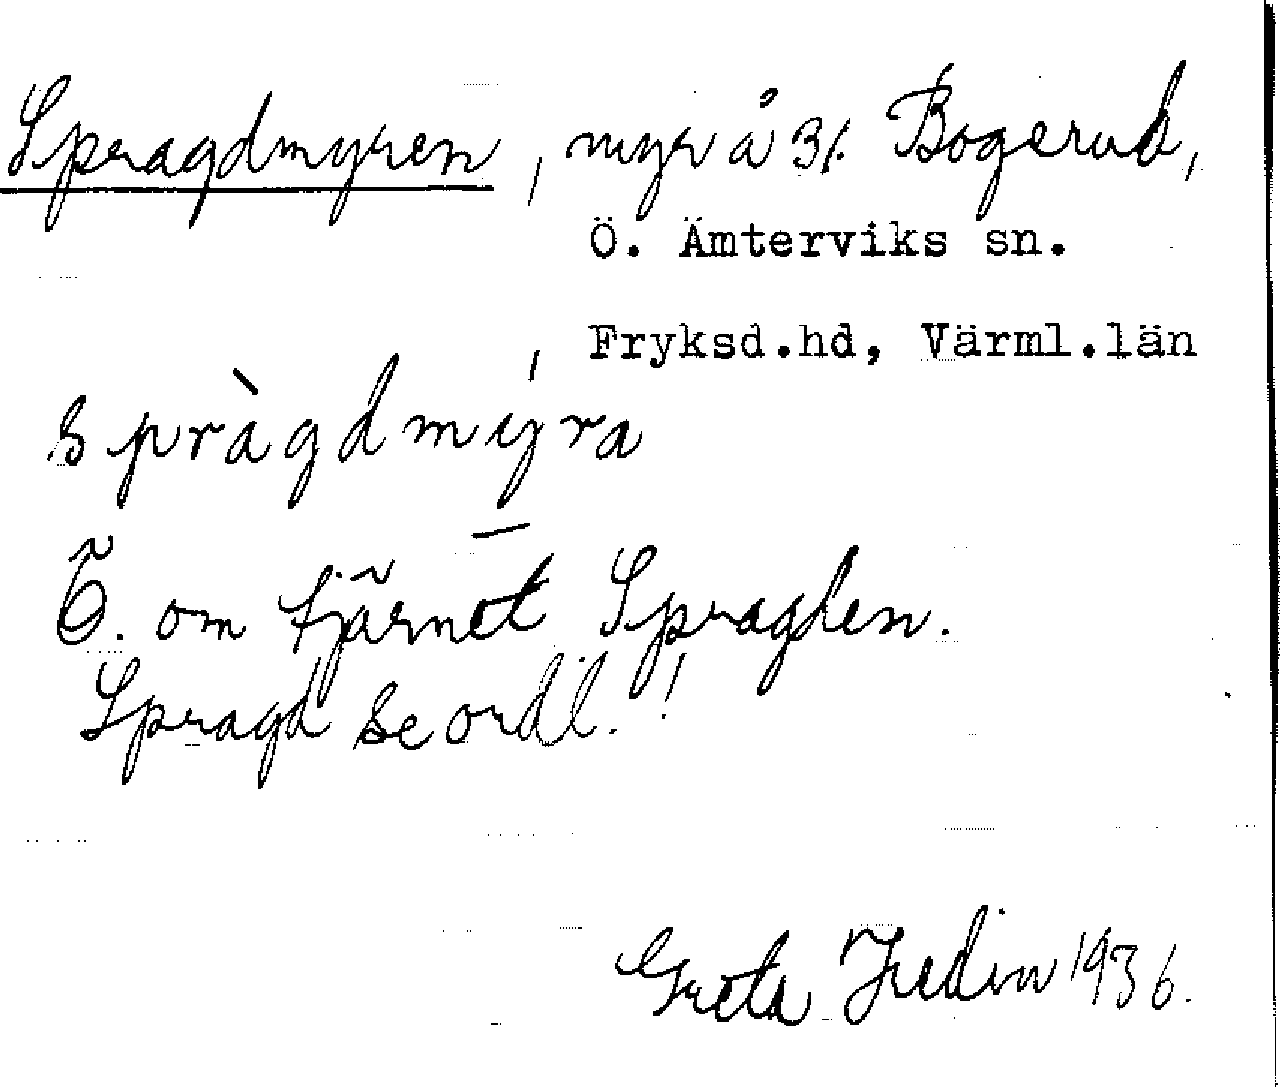 Spragdmyren, myr å 31. Bogerud,
Ö. Ämterviks sn.
Fryksd.hd, Värml.län
spràgdmýra
Ö. om tjärnet Spragden.
Spragd se ordl.!
Greta Hedin 1936.